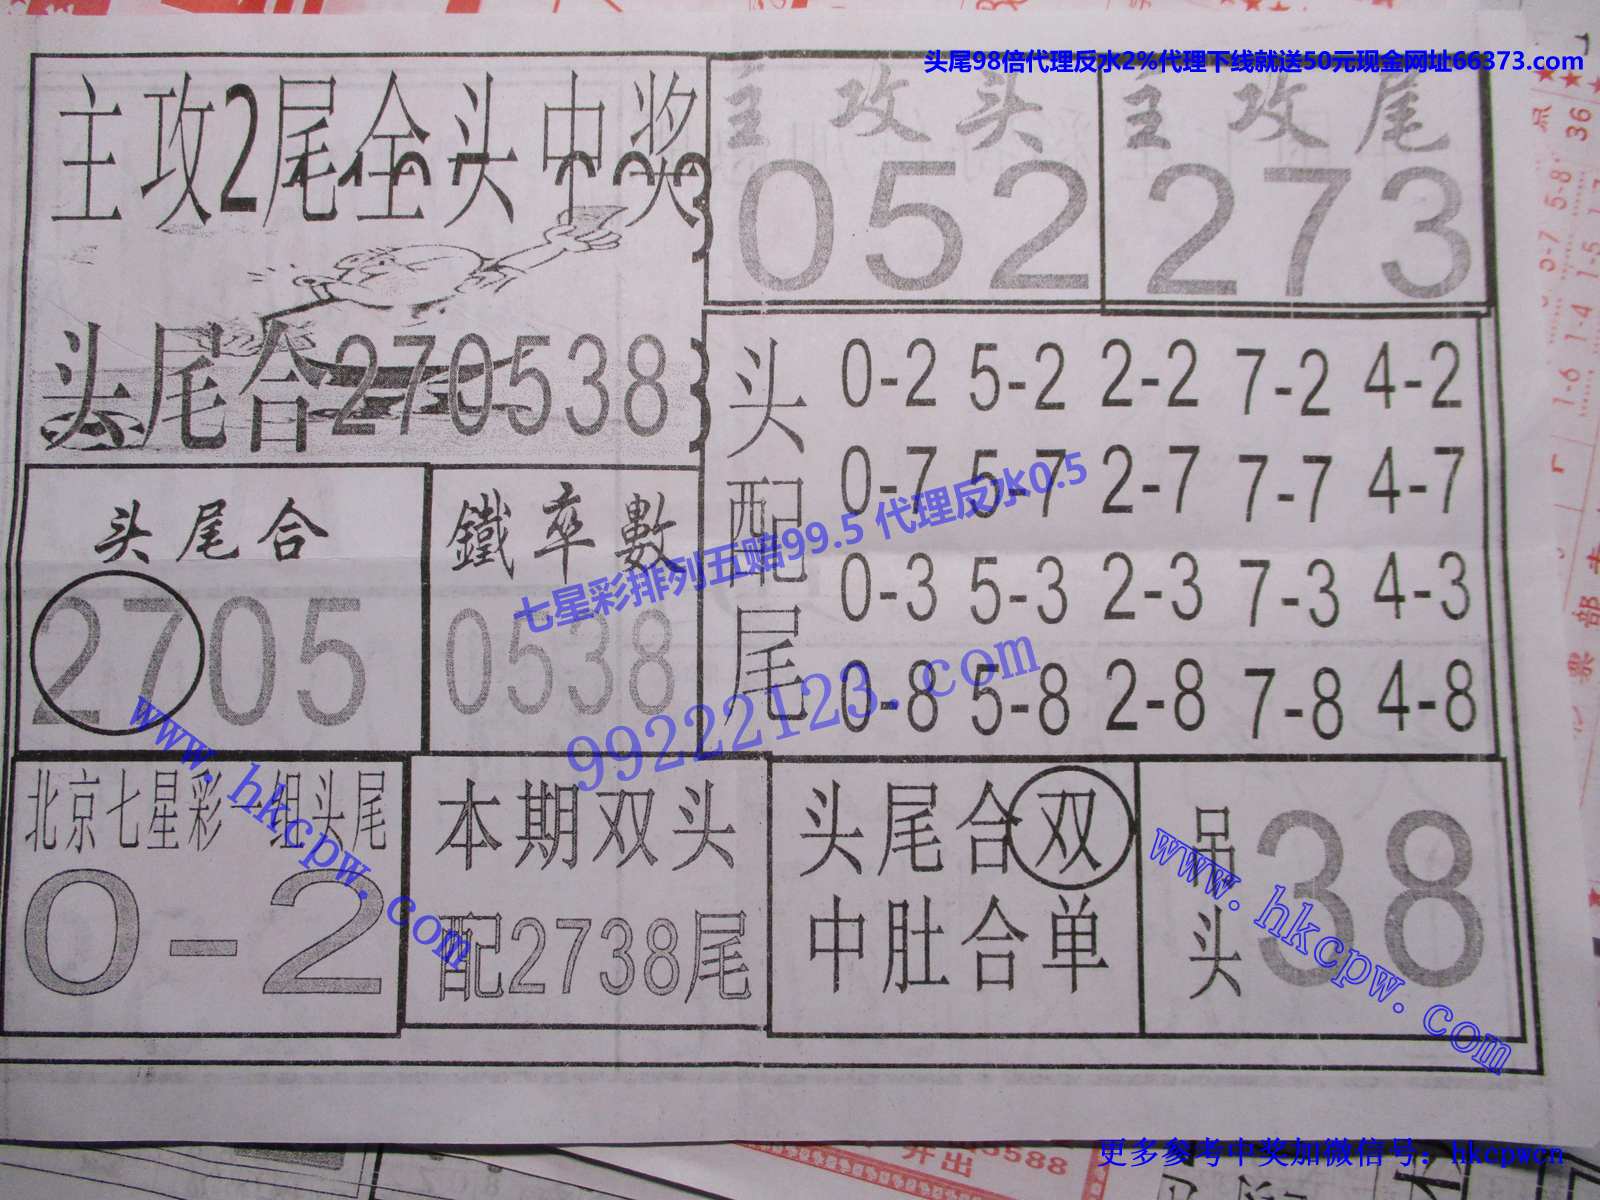 头尾98倍代理反水2%代理下线就送50元现金网址66373.com
主攻2尾全头中奖
主攻头
052
主攻尾
273
头尾合270538
头配尾
0-2 5-2 2-2 7-2 4-2
0-7 5-7 2-7 7-7 4-7
0-3 5-3 2-3 7-3 4-3
0-8 5-8 2-8 7-8 4-8
头尾合
2705
鐵率數
0538
七星彩排列五赔99.5 代理反水0.5
99222123.com
www.hkcpw.com
北京七星彩一组头尾
0-2
本期双头
配2738尾
头尾合双
中肚合单
吊头
38
www.hkcpw.com
更多参考中奖加微信号：hkcpwcn
开出
3588